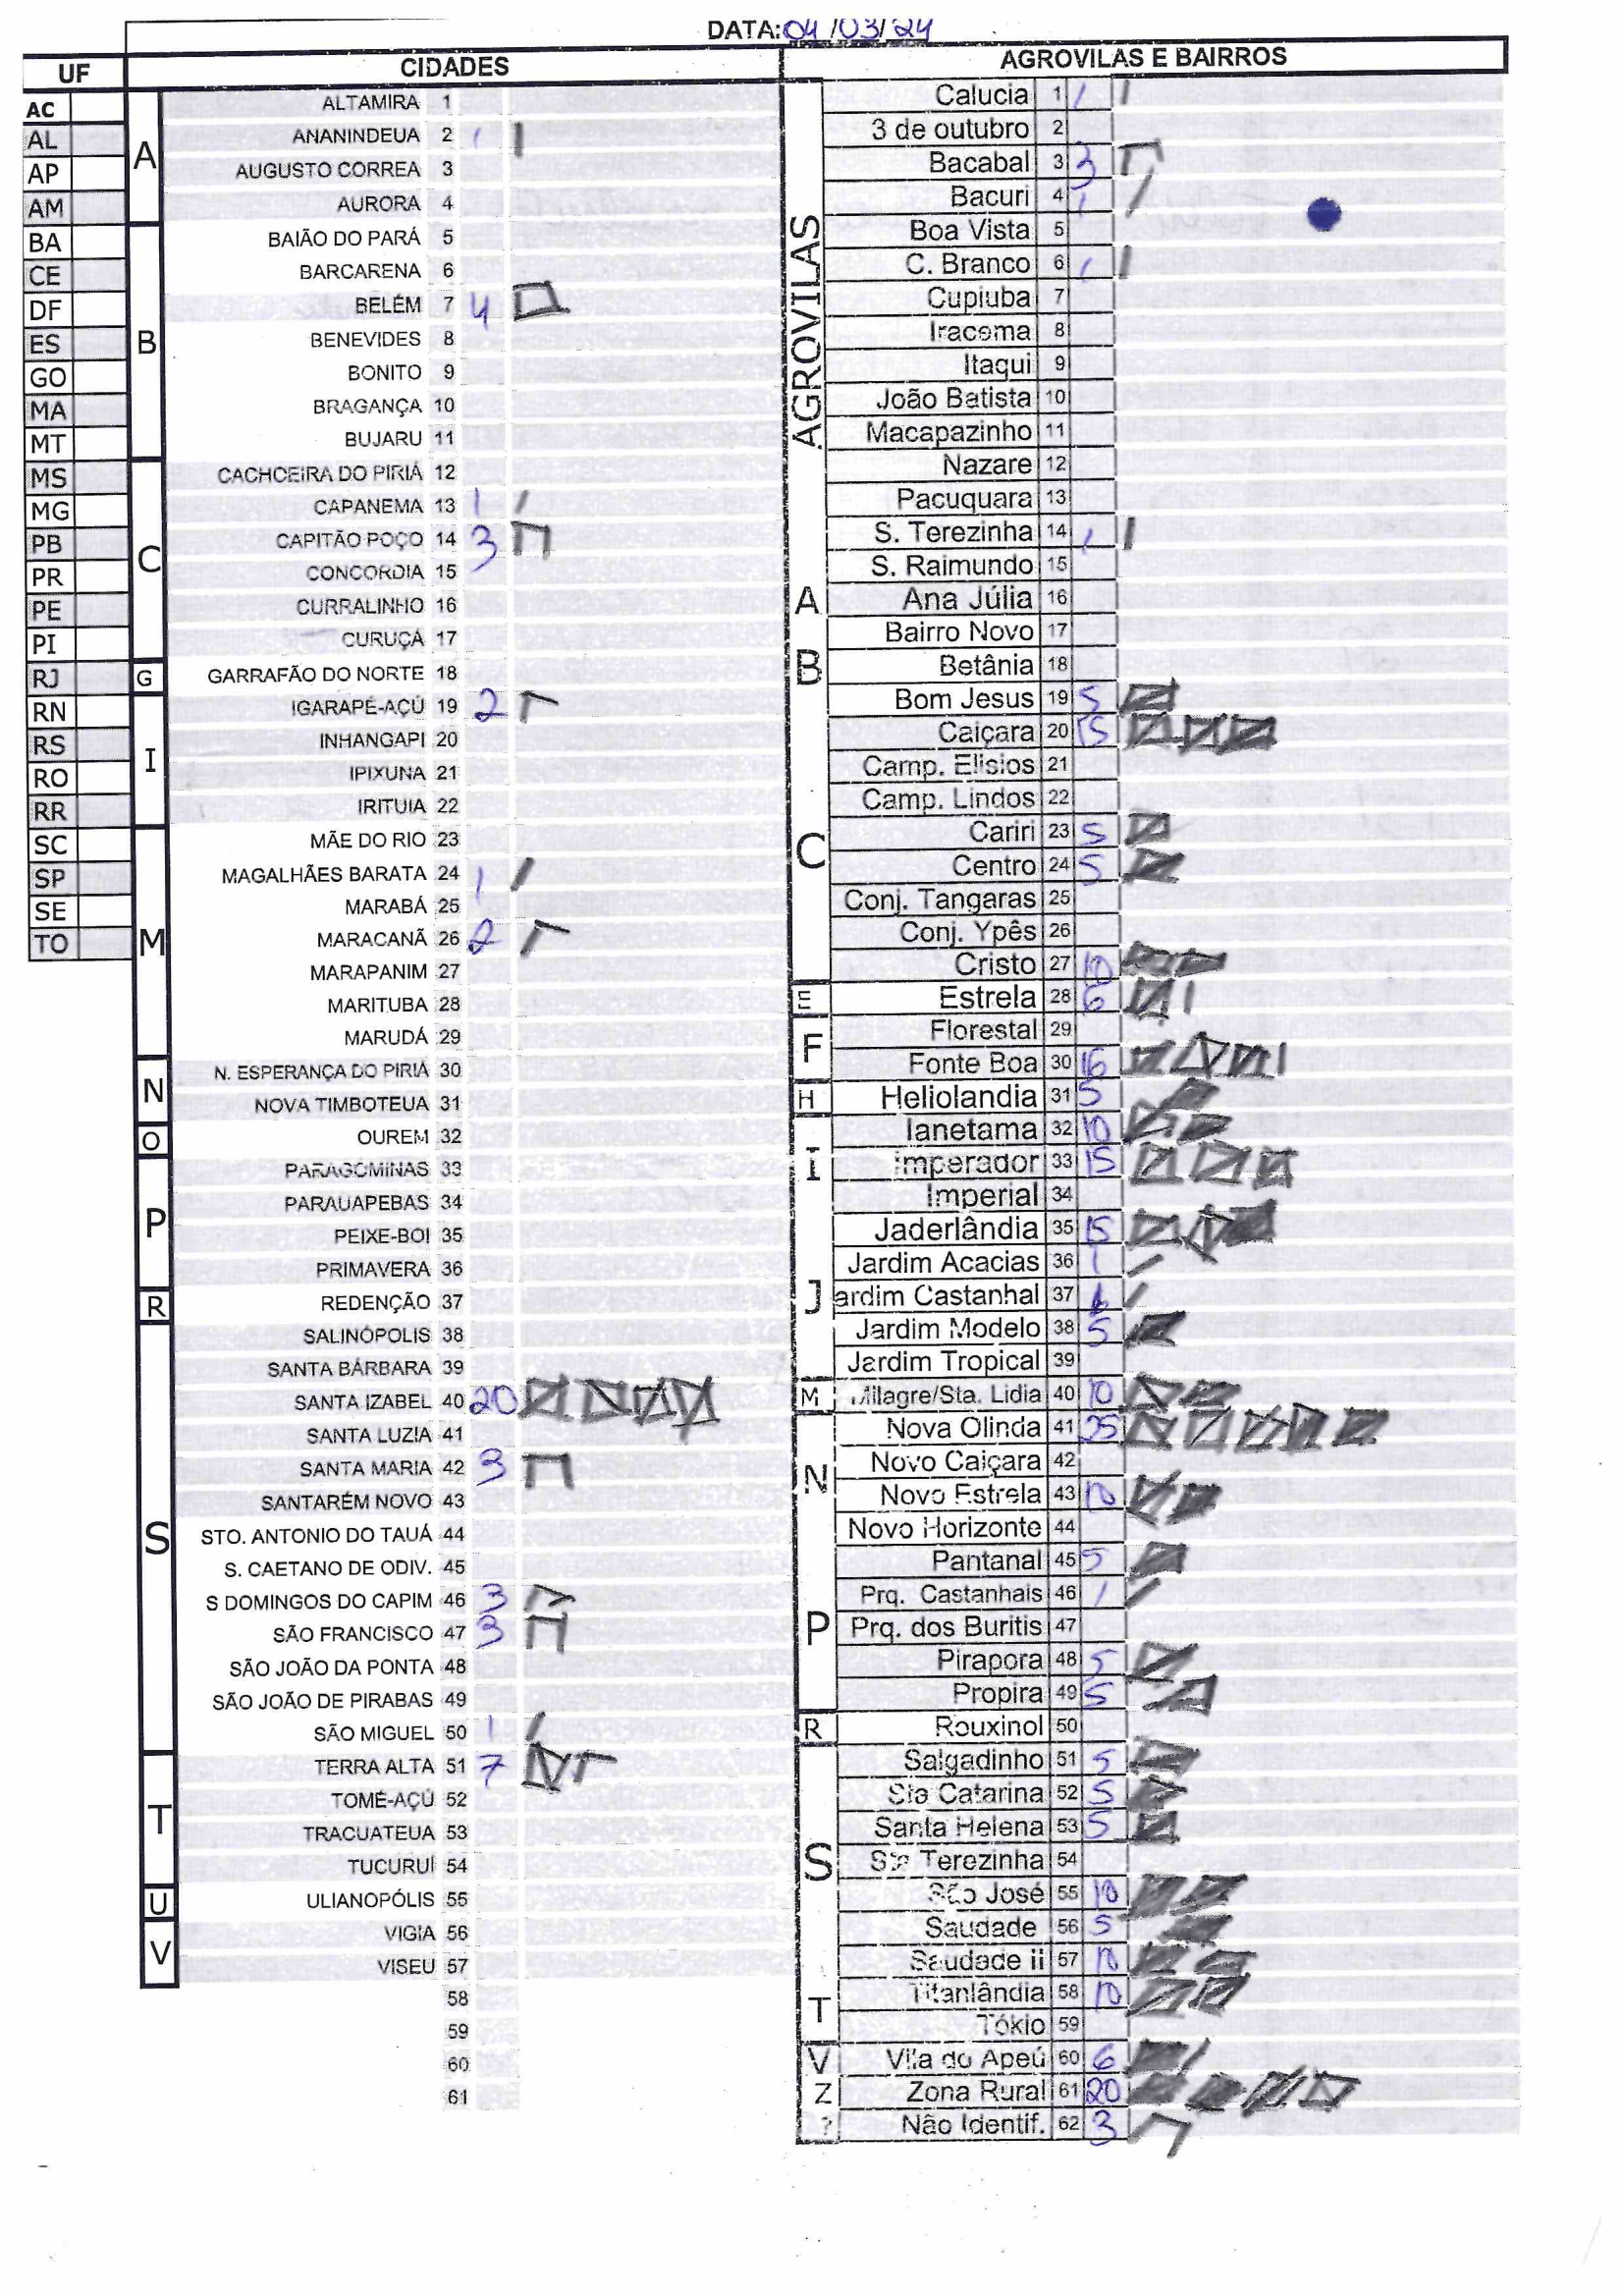 DATA: 04/03/24
UF CIDADES AGROVILAS E BAIRROS
AC
AL
AP
AM
BA
CE
DF
ES
GO
MA
MT
MS
MG
PB
PR
PE
PI
RJ
RN
RS
RO
RR
SC
SP
SE
TO
A
ALTAMIRA 1
ANANINDEUA 2 1
AUGUSTO CORREA 3
AURORA 4
B
BAIÃO DO PARÁ 5
BARCARENA 6
BELÉM 7 4
BENEVIDES 8
BONITO 9
BRAGANÇA 10
BUJARU 11
C
CACHOEIRA DO PIRIÁ 12
CAPANEMA 13 1
CAPITÃO POÇO 14 3
CONCORDIA 15
CURRALINHO 16
CURUÇÁ 17
G
GARRAFÃO DO NORTE 18
I
IGARAPÉ-AÇÚ 19 2
INHANGAPI 20
IPIXUNA 21
IRITUIA 22
M
MÃE DO RIO 23
MAGALHÃES BARATA 24 1
MARABÁ 25
MARACANÃ 26 2
MARAPANIM 27
MARITUBA 28
MARUDÁ 29
N
N. ESPERANÇA DO PIRIÁ 30
NOVA TIMBOTEUA 31
O
OUREM 32
P
PARAGOMINAS 33
PARAUAPEBAS 34
PEIXE-BOI 35
PRIMAVERA 36
R
REDENÇÃO 37
S
SALINÓPOLIS 38
SANTA BÁRBARA 39
SANTA IZABEL 40 20
SANTA LUZIA 41
SANTA MARIA 42 3
SANTARÉM NOVO 43
STO. ANTONIO DO TAUÁ 44
S. CAETANO DE ODIV. 45
S DOMINGOS DO CAPIM 46 3
SÃO FRANCISCO 47 3
SÃO JOÃO DA PONTA 48
SÃO JOÃO DE PIRABAS 49
SÃO MIGUEL 50 1
T
TERRA ALTA 51 7
TOMÉ-AÇÚ 52
TRACUATEUA 53
TUCURUÍ 54
U
ULIANOPÓLIS 55
V
VIGIA 56
VISEU 57
58
59
60
61
AGROVILAS
Calucia 1 1
3 de outubro 2
Bacabal 3 3
Bacuri 4 1
Boa Vista 5
C. Branco 6 1
Cupiuba 7
Iracema 8
Itaqui 9
João Batista 10
Macapazinho 11
Nazare 12
Pacuquara 13
S. Terezinha 14 1
S. Raimundo 15
A
Ana Júlia 16
Bairro Novo 17
B
Betânia 18
Bom Jesus 19 5
Caiçara 20 15
Camp. Elisios 21
Camp. Lindos 22
C
Cariri 23 5
Centro 24 5
Conj. Tangaras 25
Conj. Ypês 26
Cristo 27 10
E
Estrela 28 6
F
Florestal 29
Fonte Boa 30 16
H
Heliolandia 31 5
I
Ianetama 32 10
Imperador 33 15
Imperial 34
J
Jaderlândia 35 15
Jardim Acacias 36 1
ardim Castanhal 37 1
Jardim Modelo 38 5
Jardim Tropical 39
M
Milagre/Sta. Lidia 40 10
N
Nova Olinda 41 25
Novo Caiçara 42
Novo Estrela 43 10
Novo Horizonte 44
P
Pantanal 45 5
Prq. Castanhais 46 1
Prq. dos Buritis 47
Pirapora 48 5
Propira 49 5
R
Rouxinol 50
S
Salgadinho 51 5
Sta Catarina 52 5
Santa Helena 53 5
Sta Terezinha 54
São José 55 10
Saudade 56 5
Saudade II 57 10
T
Titanlândia 58 10
Tókio 59
V
Vila do Apeú 60 6
Z
Zona Rural 61 20
?
Não Identif. 62 3